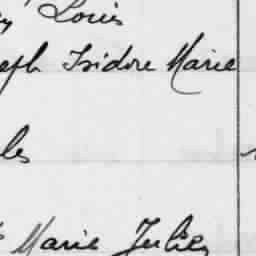 y Louis
eph Isidore Marie
les
Marie Julien